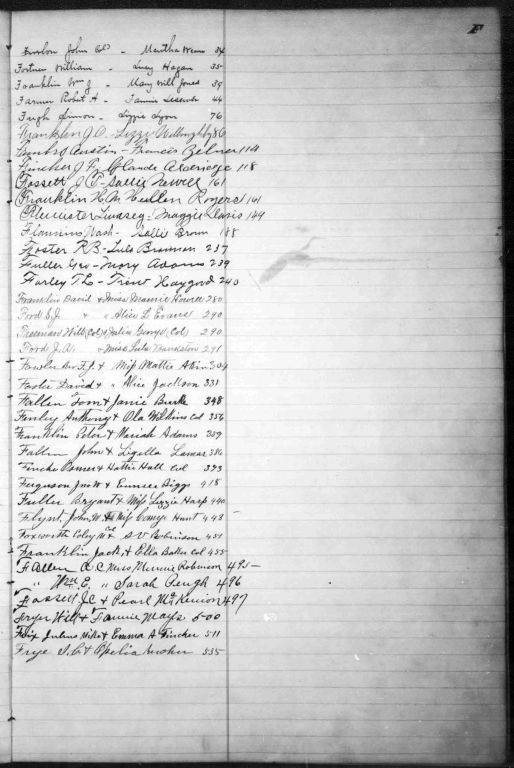 F
John Col - Martha 34
Fortner William - Lucy Hagan 35
Franklin Wm J - Mary Will Jones 39
Farmer Robert H - Fannie 44
Fugh Simon - Lizzie Lyon 76
Franklin J.O. - Lizzie Willoughby 86
Austin - Francis 114
Fincher J.F. - Claude 118
Fossett J C - Sallie Newell 161
Franklin H.M. Hellen Rogers 161
Lindsey - Maggie Davis 149
Flemings Wash - Sallie Brown 188
Foster R B - Lula 237
Fuller Geo - Mary Adams 239
Farley T L - Trew Haygood 240
Franklin David & Miss Mamie Howell 280
Ford E.J. & " Alice L Evans 290
Freeman Will (Col) & Julia George (Col) 290
Ford J.A. & Miss Lula Bankston 291
Fowler F.J. & Miss Mattie 304
Foster David & " Alice Jackson 331
Fallen Tom & Janie Burke 348
Finley Anthony & Ola Wilkins Col 356
Franklin & Mariah Adams 359
Fallin John & Ligella Lamar 386
Finche Homer & Hattie Hall Col 393
Ferguson Jno W & Eunice Biggs 418
Fuller Bryant & Miss Lizzie Harp 440
Flynt, John, W. & Miss Hunt 448
Foxworth Coley W & Robinson 451
Franklin Jack, & Ella Baker Col 455
Fallen A C Miss Minnie Robinson 495
" Wm E. " Sarah Peugh 496
Fossett J C & Pearl McKenion 497
Fryer Will & Fannie Mays 500
Felix Julius Mike & Emma A Fincher 511
Frye S. C. & Ophelia 535